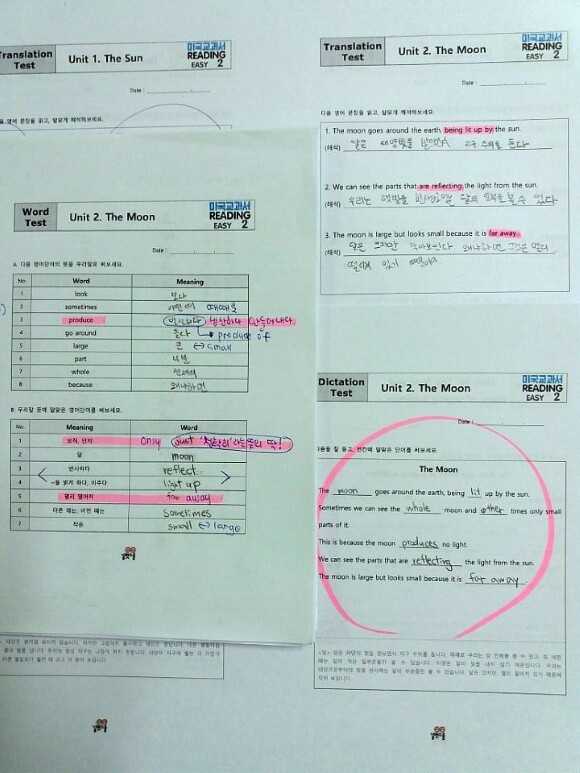 Translation
Test
Unit 1. The Sun
미국교과서
READING
EASY 2
Date :
Translation
Test
Unit 2. The Moon
미국교과서
READING
EASY 2
Date :
다음 영어 문장을 읽고, 알맞게 해석해보세요.
1. The moon goes around the earth, being lit up by the sun.
(해석) 달은 태양빛을 받으면서 지구 주위를 돈다
2. We can see the parts that are reflecting the light from the sun.
(해석) 우리는 햇빛을 반사하는 달의 부분을 볼 수 있다
3. The moon is large but looks small because it is far away.
(해석) 달은 크지만 작아보인다 왜냐하면 그것은 멀리
떨어져 있기 때문이다
Word
Test
Unit 2. The Moon
미국교과서
READING
EASY 2
Date :
A. 다음 영어단어의 뜻을 우리말로 써보세요.
No. Word Meaning
1 look 보다
2 sometimes 어떤 때 때때로
3 produce 생산하다 만들어내다
4 go around 돌다 produce of
5 large 큰 ↔ small
6 part 부분
7 whole 전체의
8 because 왜냐하면
B. 우리말 뜻에 알맞은 영어단어를 써보세요.
No. Meaning Word
1 오직, 단지 only just
2 달 moon
3 반사하다 reflect
4 ~을 밝게 하다, 비추다 light up
5 멀리 떨어져 far away
6 다른 때는, 어떤 때는 sometimes
7 작은 small ↔ large
Dictation
Test
Unit 2. The Moon
미국교과서
READING
EASY 2
Date :
다음을 잘 듣고, 빈칸에 알맞은 단어를 써보세요.
The Moon
The moon goes around the earth, being lit up by the sun.
Sometimes we can see the whole moon and other times only small
parts of it.
This is because the moon produces no light.
We can see the parts that are reflecting the light from the sun.
The moon is large but looks small because it is far away.